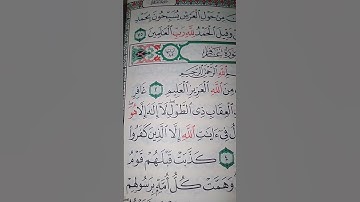 مِنْ حَوْلِ ٱلْعَرْشِ يُسَبِّحُونَ بِحَمْدِ
وَقِيلَ ٱلْحَمْدُ لِلَّهِ رَبِّ ٱلْعَٰلَمِينَ ٧٥
سُورَةُ غَافِرٍ
ٱللَّهِ ٱلرَّحْمَٰنِ ٱلرَّحِيمِ
مِنَ ٱللَّهِ ٱلْعَزِيزِ ٱلْعَلِيمِ ٢ غَافِرِ
ٱلْعِقَابِ ذِى ٱلطَّوْلِ لَآ إِلَٰهَ إِلَّا هُوَ
فِىٓ ءَايَٰتِ ٱللَّهِ إِلَّا ٱلَّذِينَ كَفَرُوا۟
٤ كَذَّبَتْ قَبْلَهُمْ قَوْمُ
وَهَمَّتْ كُلُّ أُمَّةٍۭ بِرَسُولِهِمْ